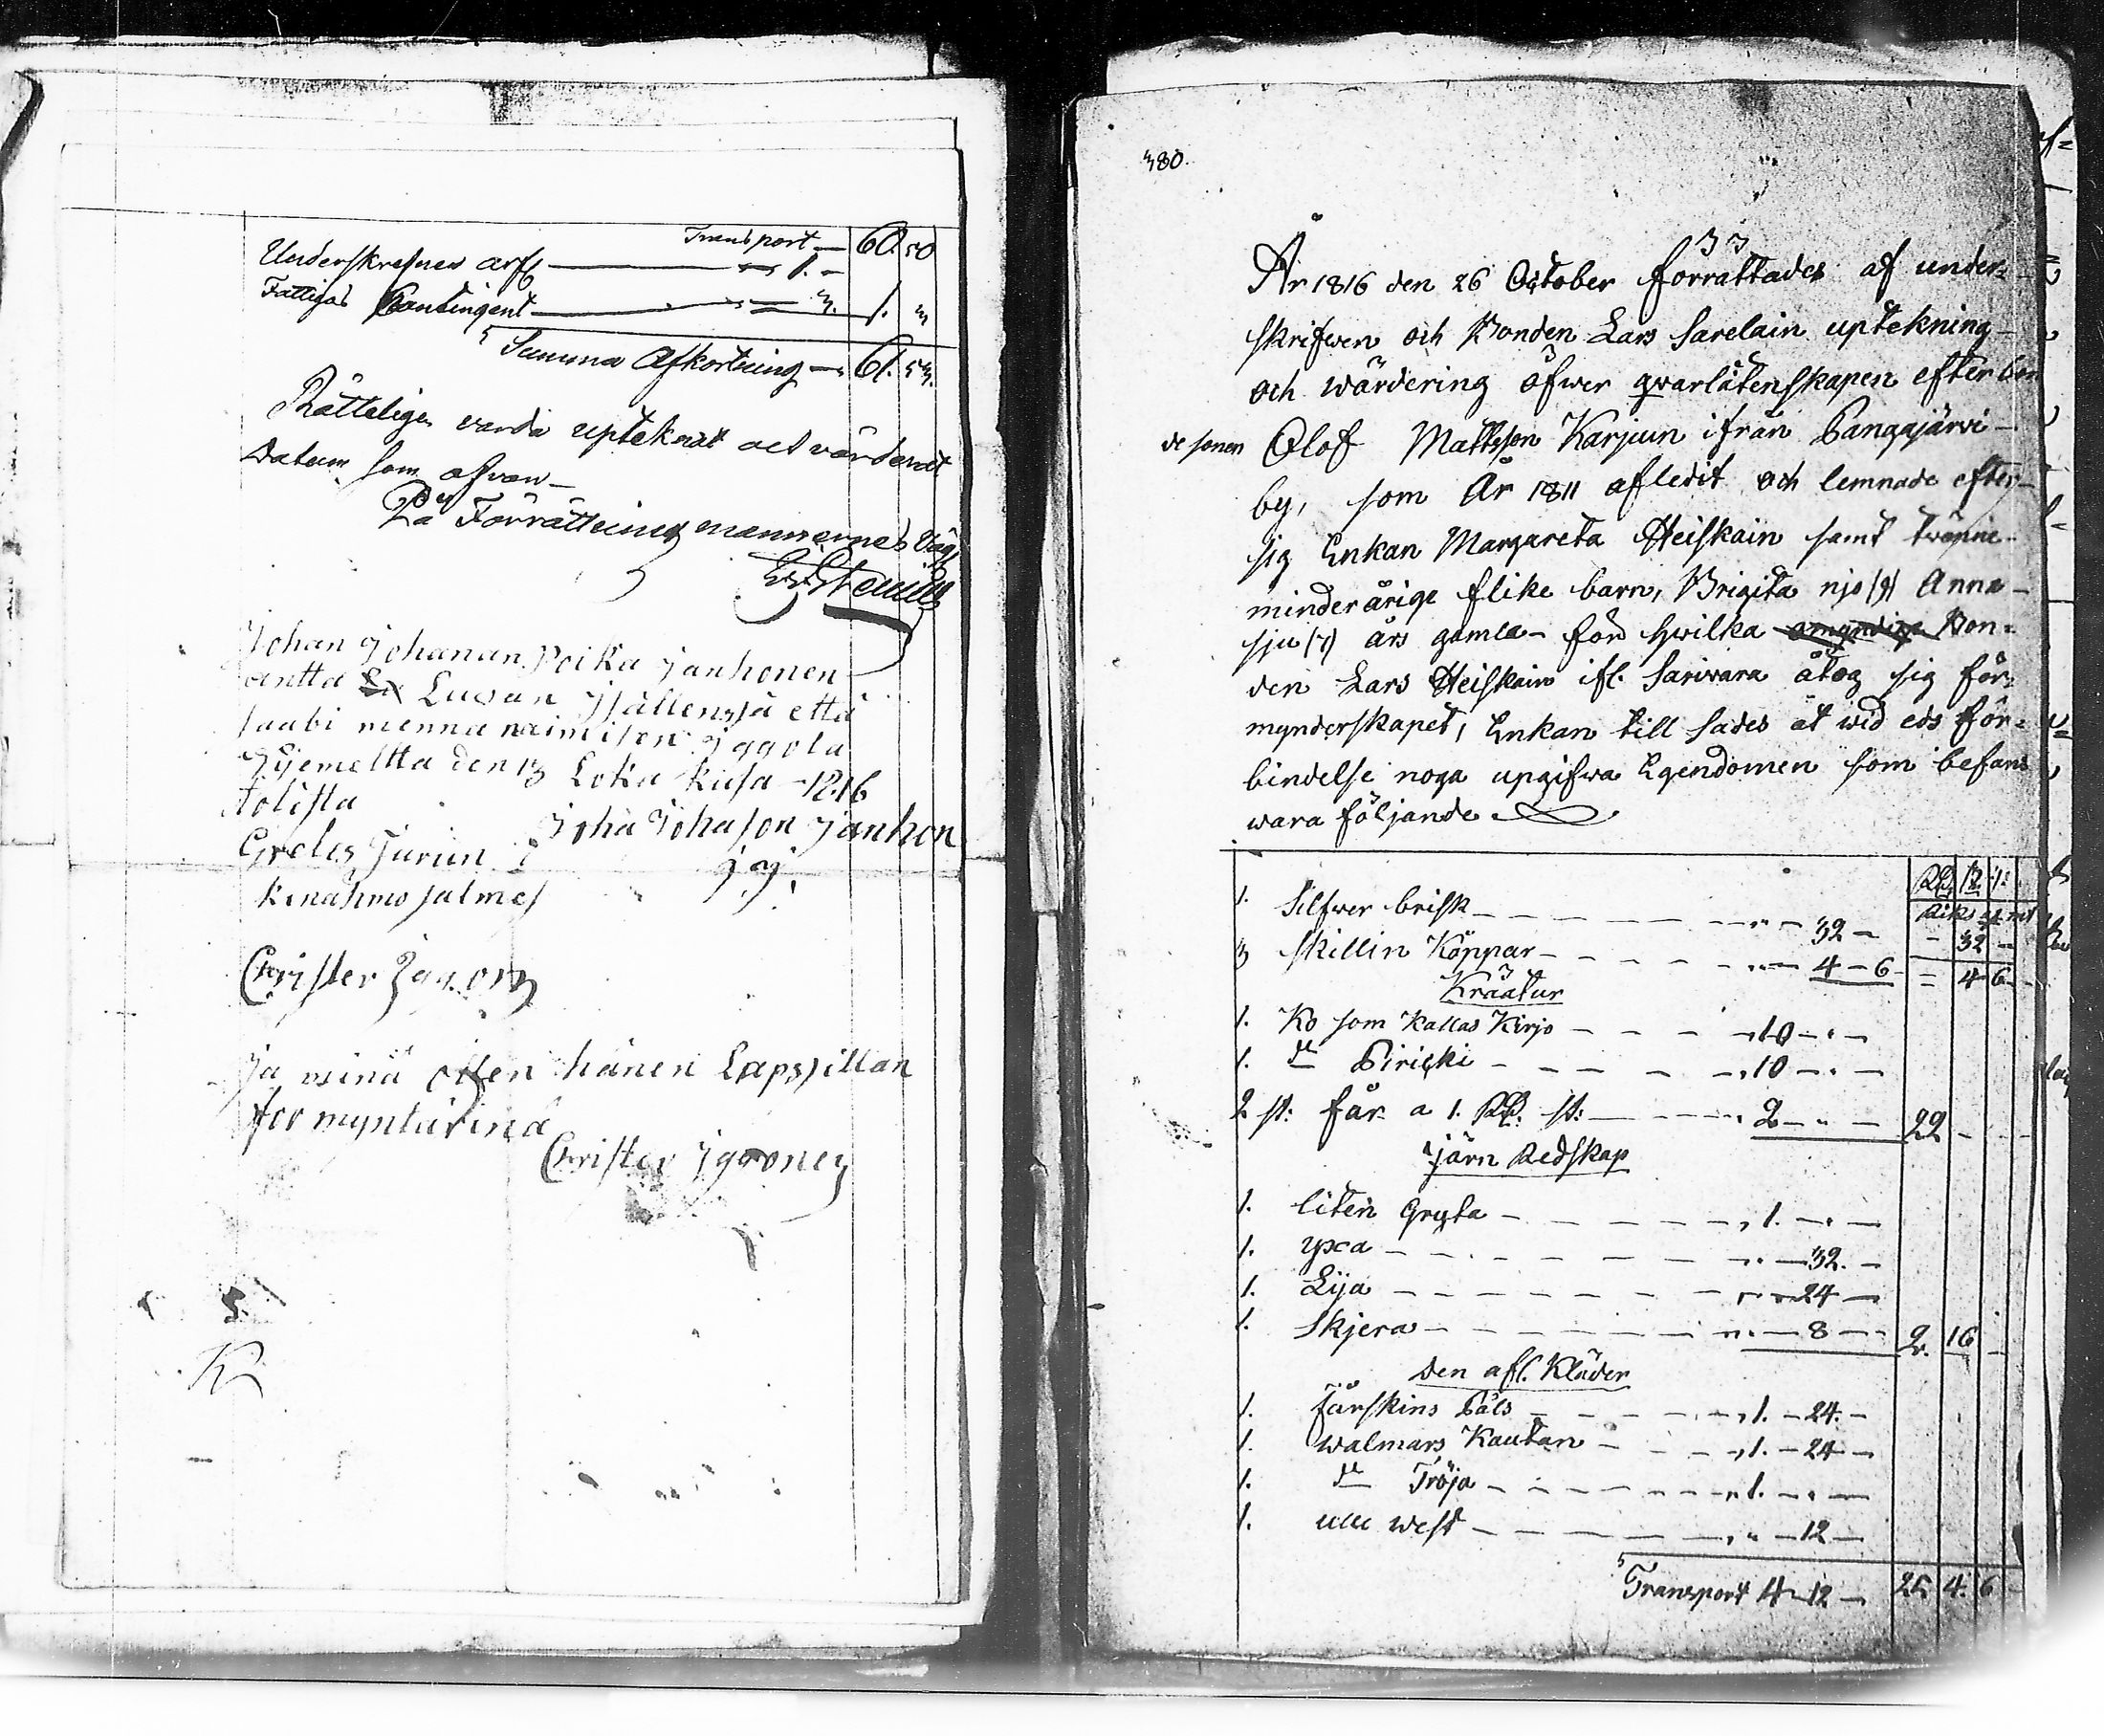 Transport — 60. 50
Underskrefnes arf — 1. –
Fattigas Contingent — 3. 1. 3
Summa Afkortning — 61. 53.
Rätteligen varda upteknat och värderat
Datum som ofvan –
På Förrättning mannernes väg:
Johan Johanan Poika Janhonen
antta Luvan että
saabi menna naimisen
den 13 Loka kusa 1816
tolista
Joha Johason Janhon
J J.
Christer
Ja minä ollen hänen Lapsillan
for myntärinä
Christer Jgoney
R
380.
År 1816 den 26 October förrättades af under-
skrifven och Bonden Lars Sarelain uptekning
och wärdering öfwer qvarlåtenskapen efter bon
de sonen Olof Mattsson Karjuin ifrån Pangajärvi
by, som År 1811 afledit och lemnade efter
sig Enkan Margareta Heiskain samt twänne
minderårige flike barn, Brigita njo (9) Anna
sju (7) års gamla –för hwilka omyndige Bon-
den Lars Heiskain ifr. Sarivara åtog sig för-
mynderskapet, Enkan till sades at wid eds för-
bindelse noga upgifwa Egendomen som befans
wara följande
Rb. ß r:
1. Silfwer brisk – 32 – – 32 –
3 skillin Köppar – 4 – 6 – 4 6
Kräatur
1. Ko som kallas Kirjo – 10 –
1. do Piricki – 10 –
2 st: får a 1. Rb: st: – 2 – 22 –
Järn Redskap
1. liten Gryta – 1. –
1. yxa – 32. –
1. Lija – 24 –
1. Skjera – 8 – 2. 16 –
Den afl. Kläder
1. Fårskins Päls – 1. – 24. –
1. walmars Kautan – 1. – 24 –
1. do Tröja – 1. –
1. ulle west – 12 –
Transport 4 – 12 – 25 4. 6